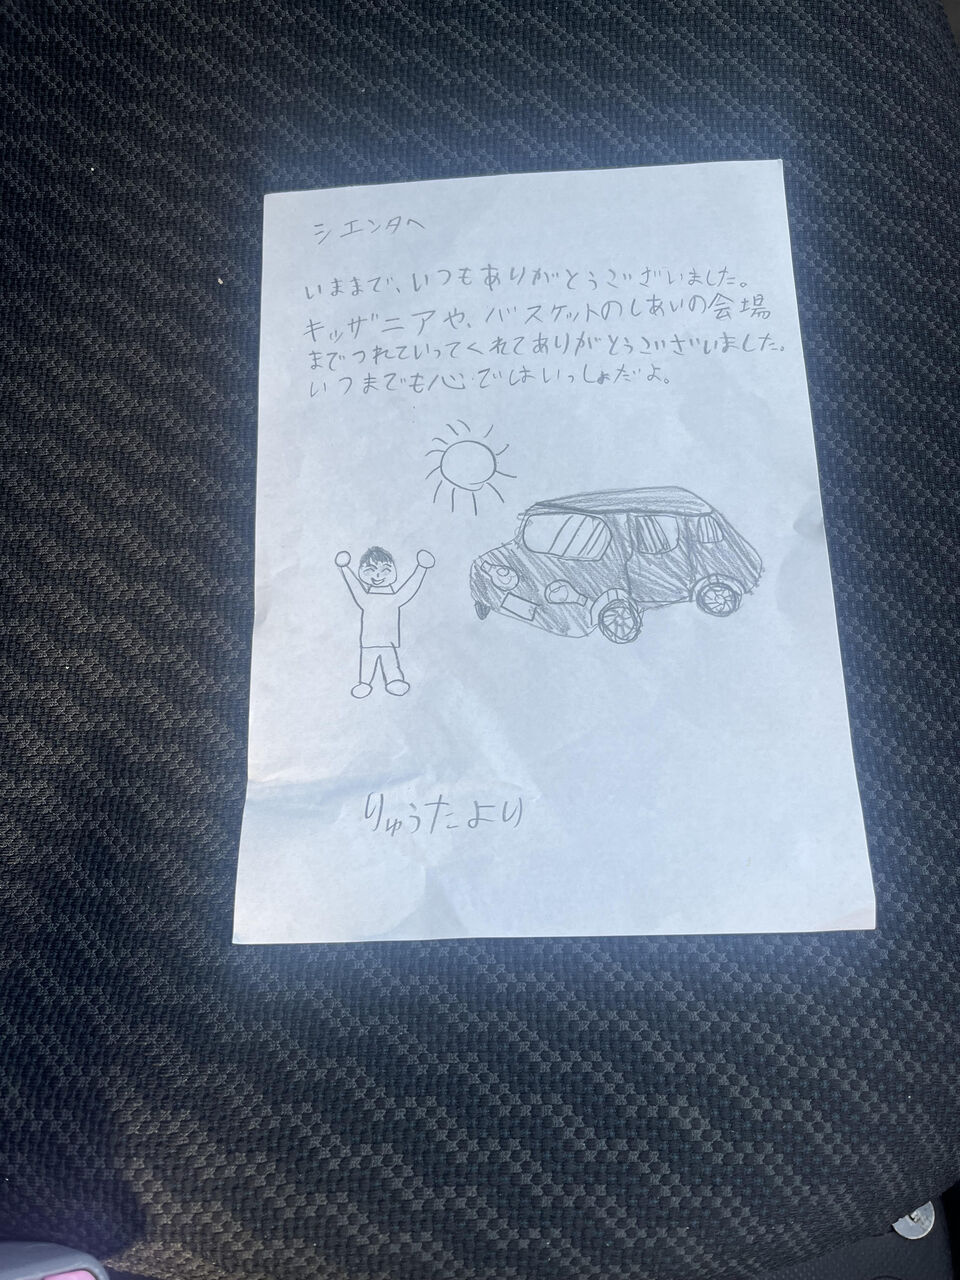 シエンタへ
いままで、いつもありがとうございました。
キッザニアや、バスケットのしあいの会場
までつれていってくれてありがとうございました。
いつまでも心ではいっしょだよ。
りゅうたより